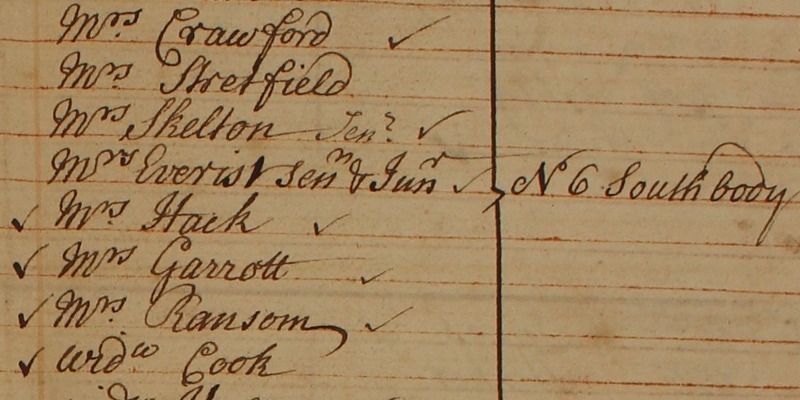 Mrs Crawford ✓
Mrs Stretfield
Mrs Skelton Senr ✓
Mrs Everist senr & Junr ✓ N 6 South body
✓ Mrs Hack ✓
✓ Mrs Garrott ✓
✓ Mrs Ransom ✓
✓ Widw Cook